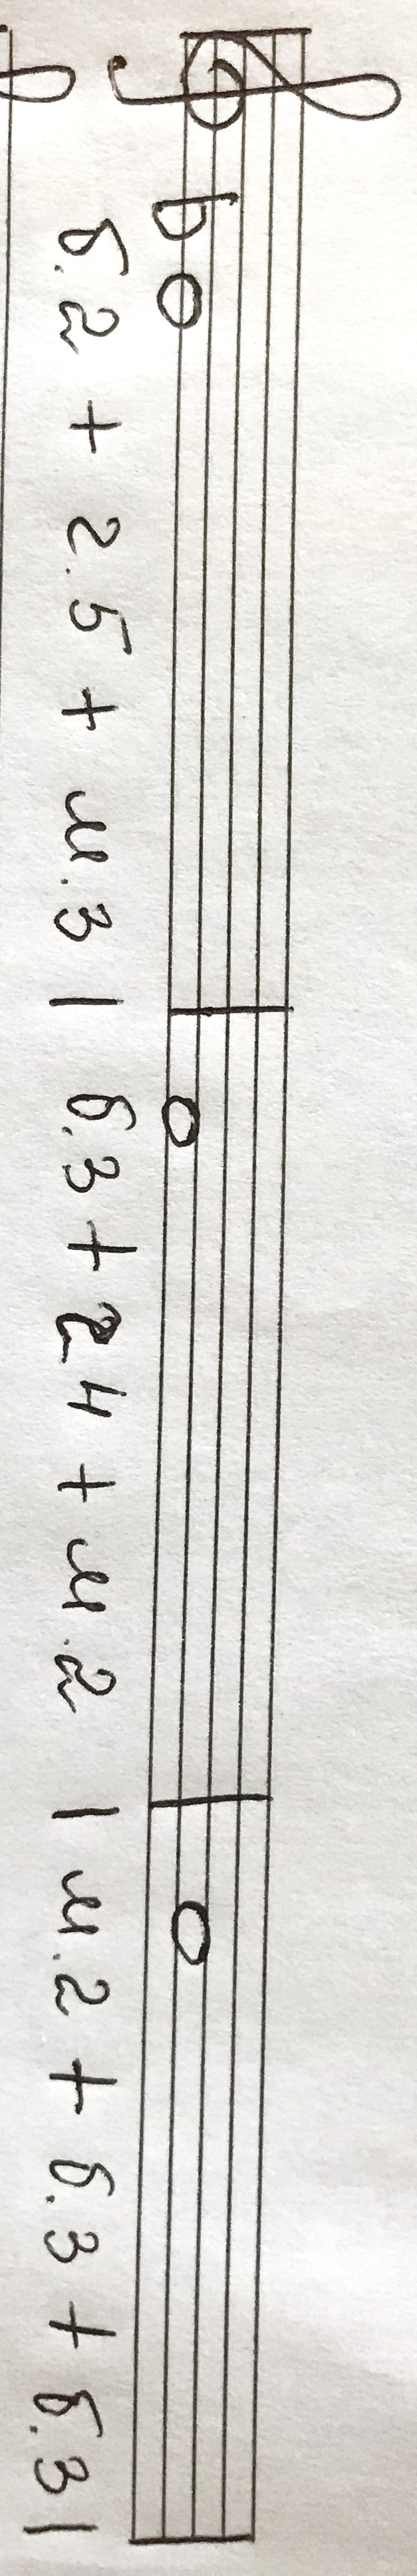 б.2 + 2.5 + м.3 | б.3 + 2 4 + м.2 | м.2 + б.3 + б.3 |